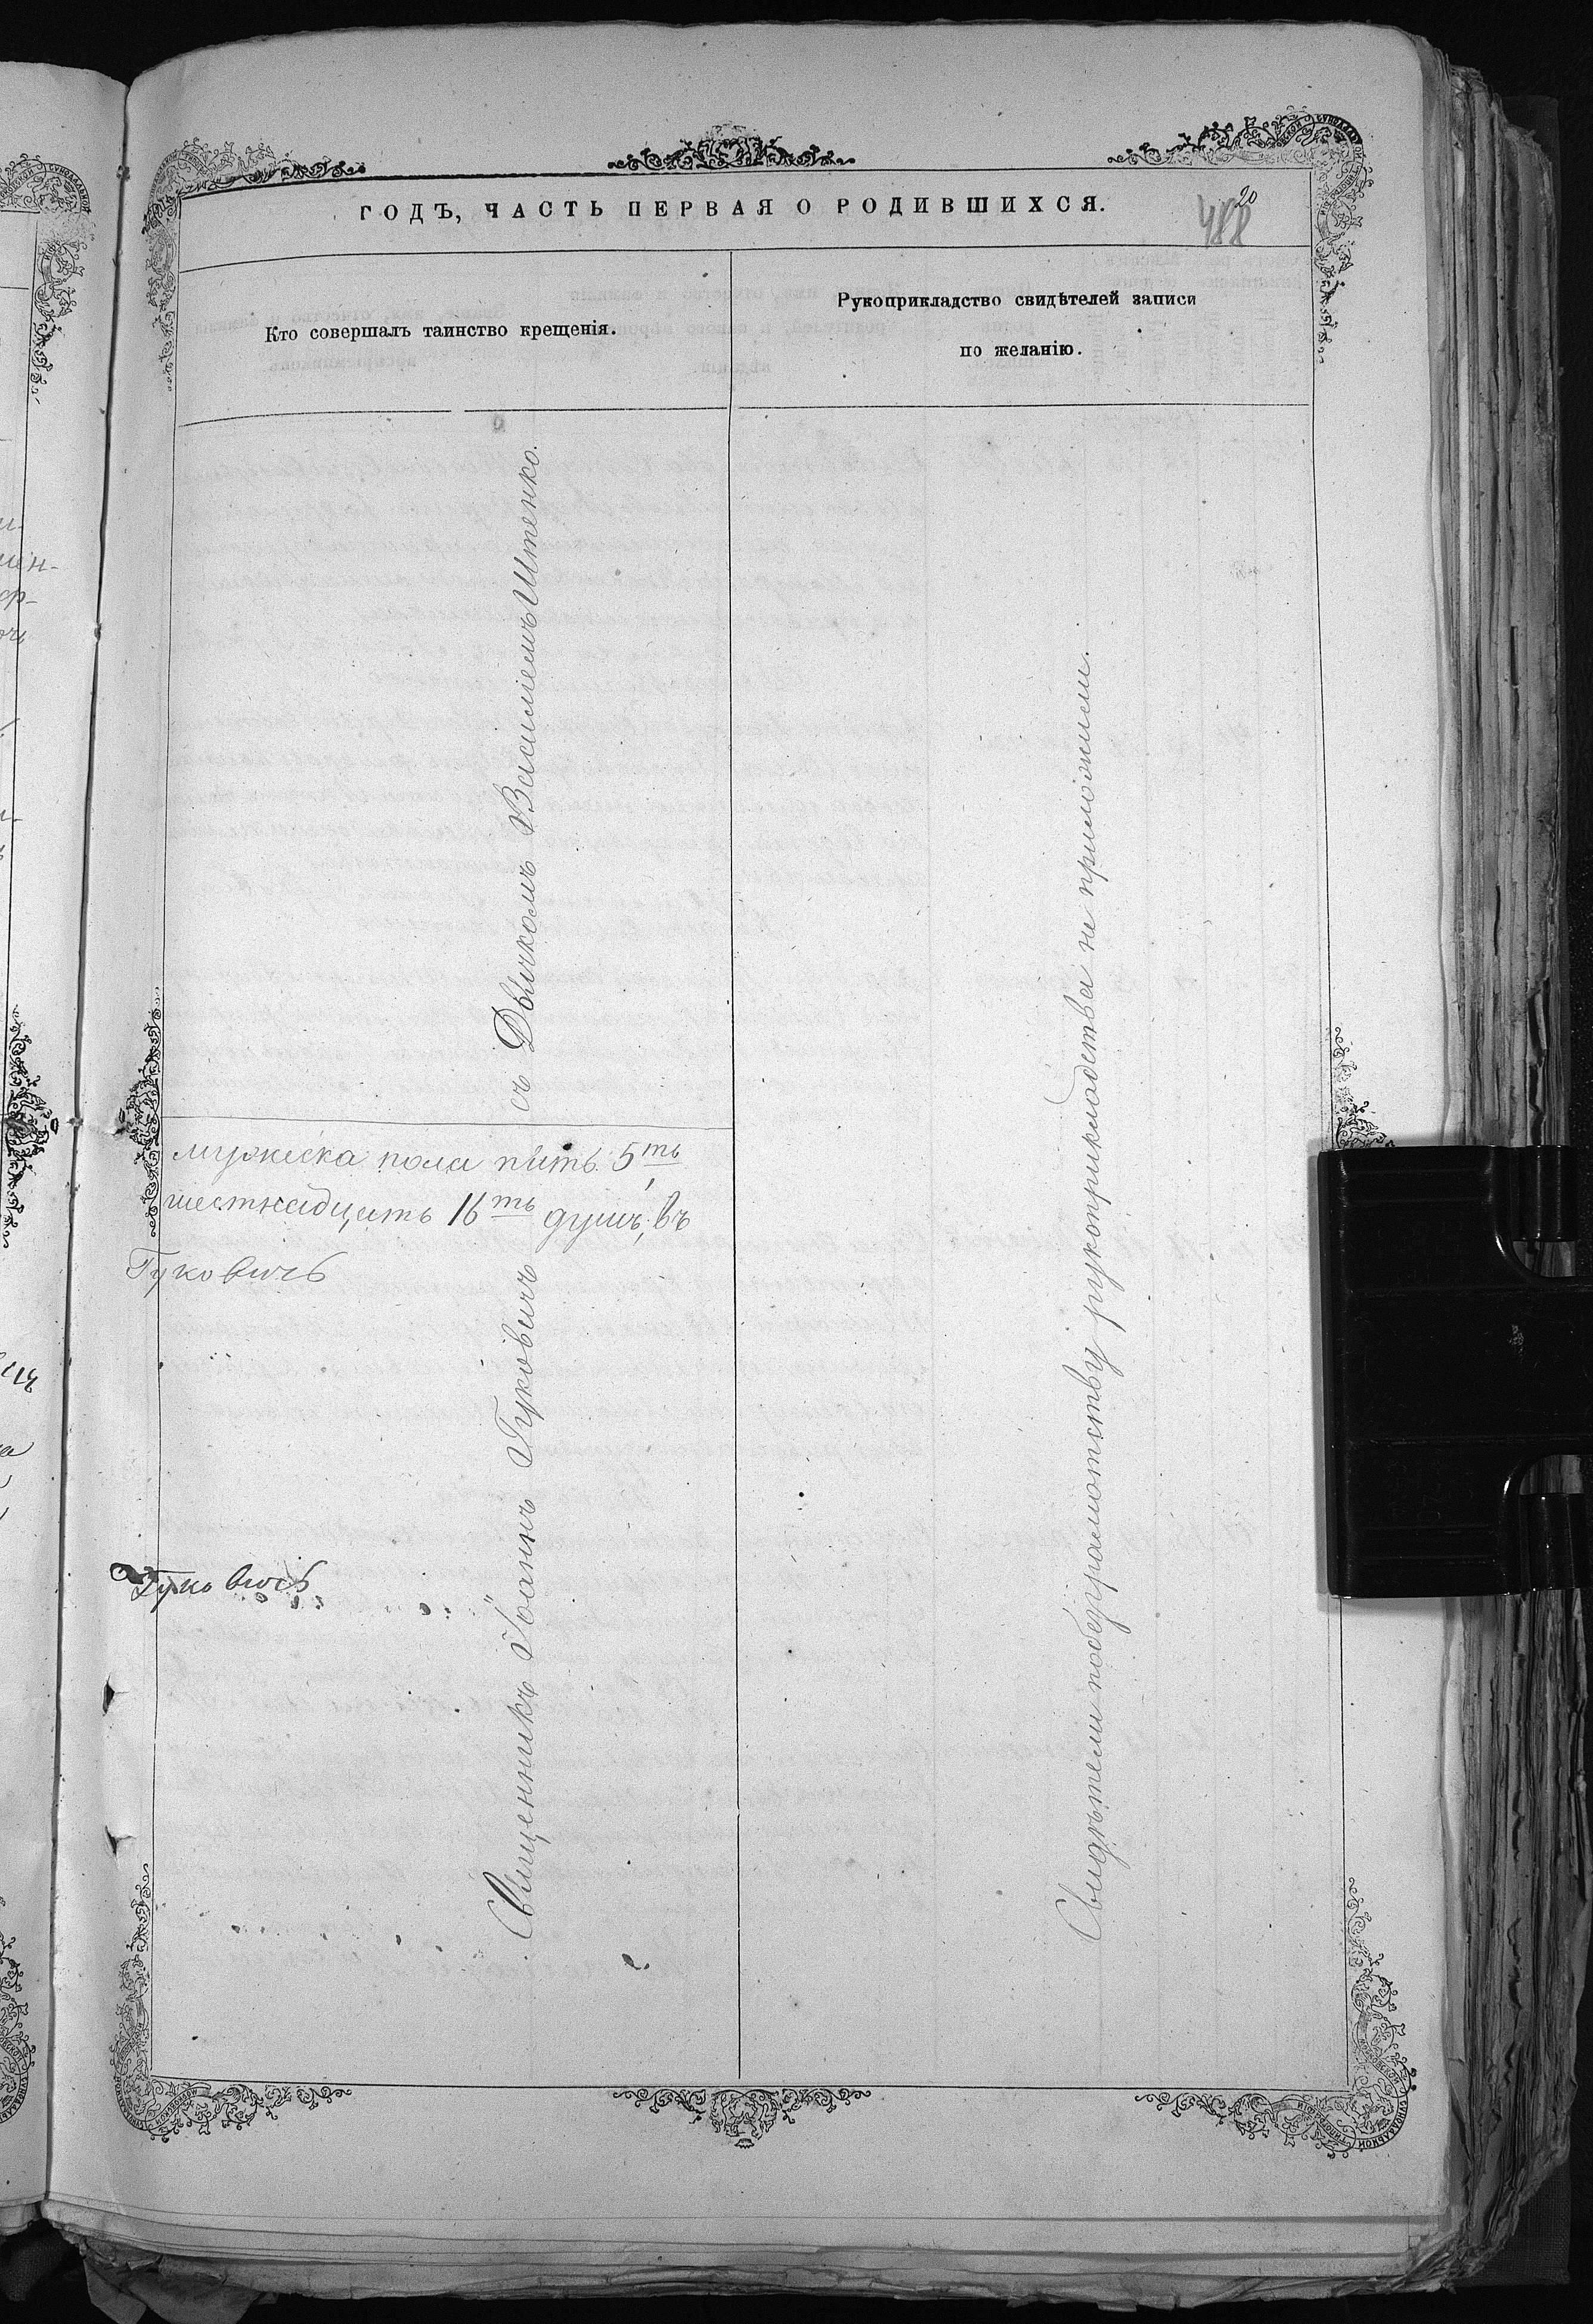 ГОДЪ, ЧАСТЬ ПЕРВАЯ О РОДИВШИХСЯ.
20
488
Кто совершалъ таинство крещенія.
Рукоприкладство свидѣтелей записи
по желанію.
Священникъ Іоаннъ Гуковичъ съ Дьячкомъ Василіемъ Штенко.
мужеска пола пять 5ть
шестнадцать 16ть душъ, въ
Гуковичъ
Гуковичъ
Свидѣтели по безграмотству рукоприкладства не приложили.